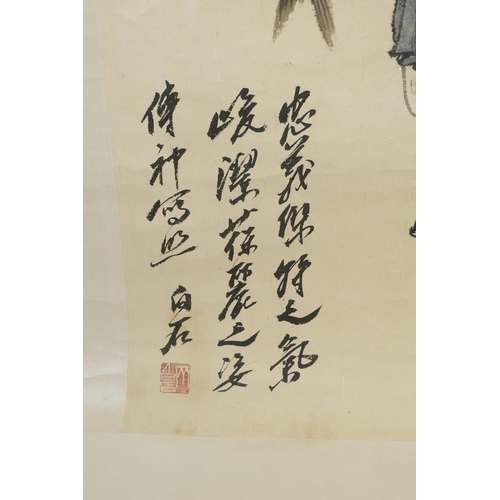 忠義傑特之氣
峻潔葆麗之姿
傳神寫照
白石